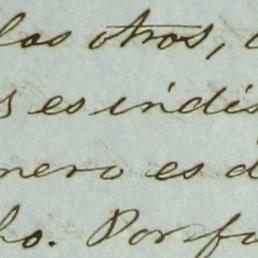 las otros,
s es indis
nero es d
ho. Por fu